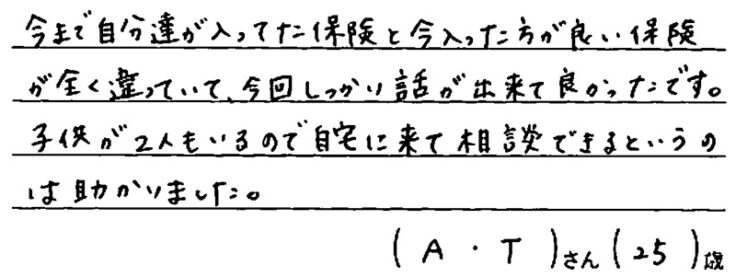 今まで自分達が入ってた保険と今入った方が良い保険
が全く違っていて、今回しっかり話が出来て良かったです。
子供が2人もいるので自宅に来て相談できるというの
は助かりました。
(A・T)さん(25)歳